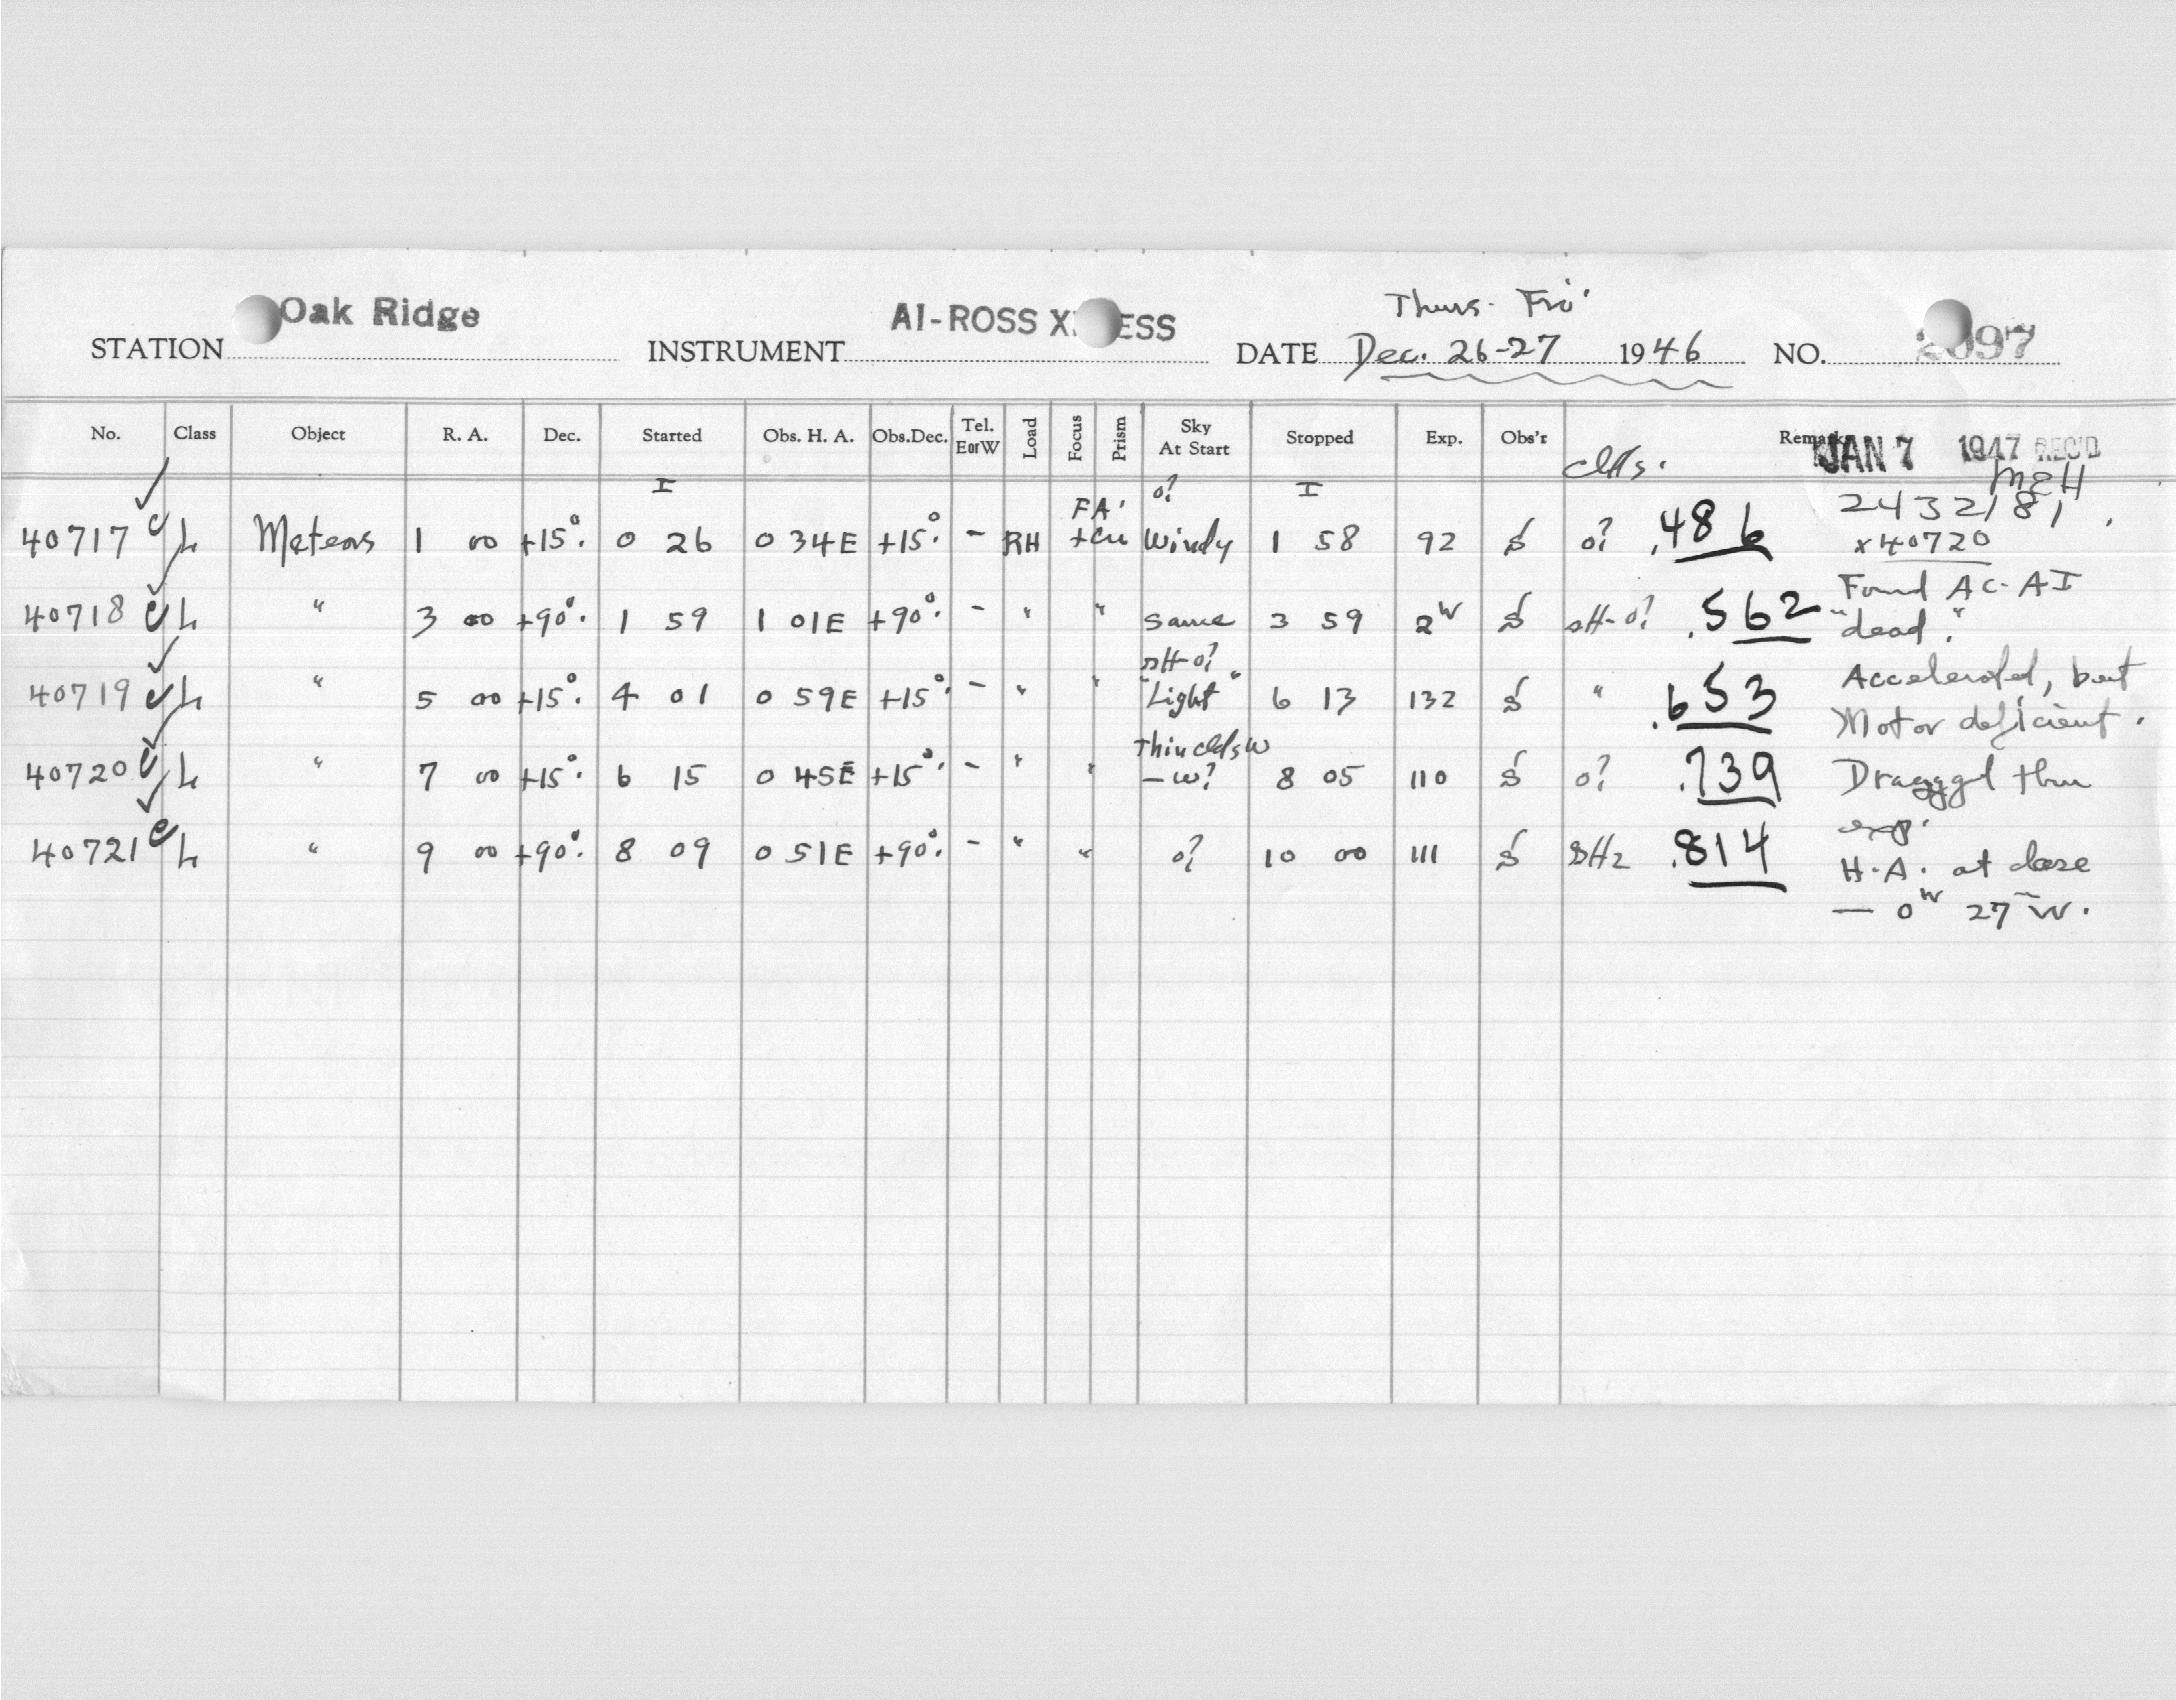 Thurs. Fri.
STATION Oak Ridge INSTRUMENT AI-ROSS X ESS DATE Dec. 26-27 1946 NO. 2097
No. Class Object R. A. Dec. Started Obs. H. A. Obs.Dec. Tel. EorW Load Focus Prism Sky At Start Stopped Exp. Obs'r Remarks
JAN 7 1947 REC'D
I o? I
40717 L Meteors 1 00 +15°. 0 26 0 34E +15°. - RH FA. Windy 1 58 92 o? .486 2432181.
x40720
40718 L " 3 00 +90°. 1 59 1 01E +90°. - " " Same 3 59 2 .562 Found AC-AI
"dead."
40719 L " 5 00 +15°. 4 01 0 59E +15°. - " " "Light" 6 13 132 " .653 Accelerated, but
Motor deficient.
40720 L " 7 00 +15°. 6 15 0 45E +15°. - " " Thin clds W - w? 8 05 110 o? .739 Dragged thru
exp.
40721 L " 9 00 +90°. 8 09 0 51E +90°. - " " o? 10 00 111 .814 H.A. at close
— 0 27 W.